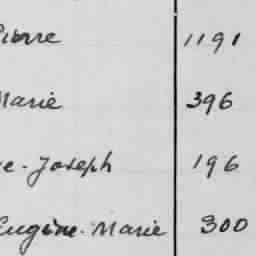 Pierre 1191
Marie 396
e-Joseph 196
Eugène-Marie 300